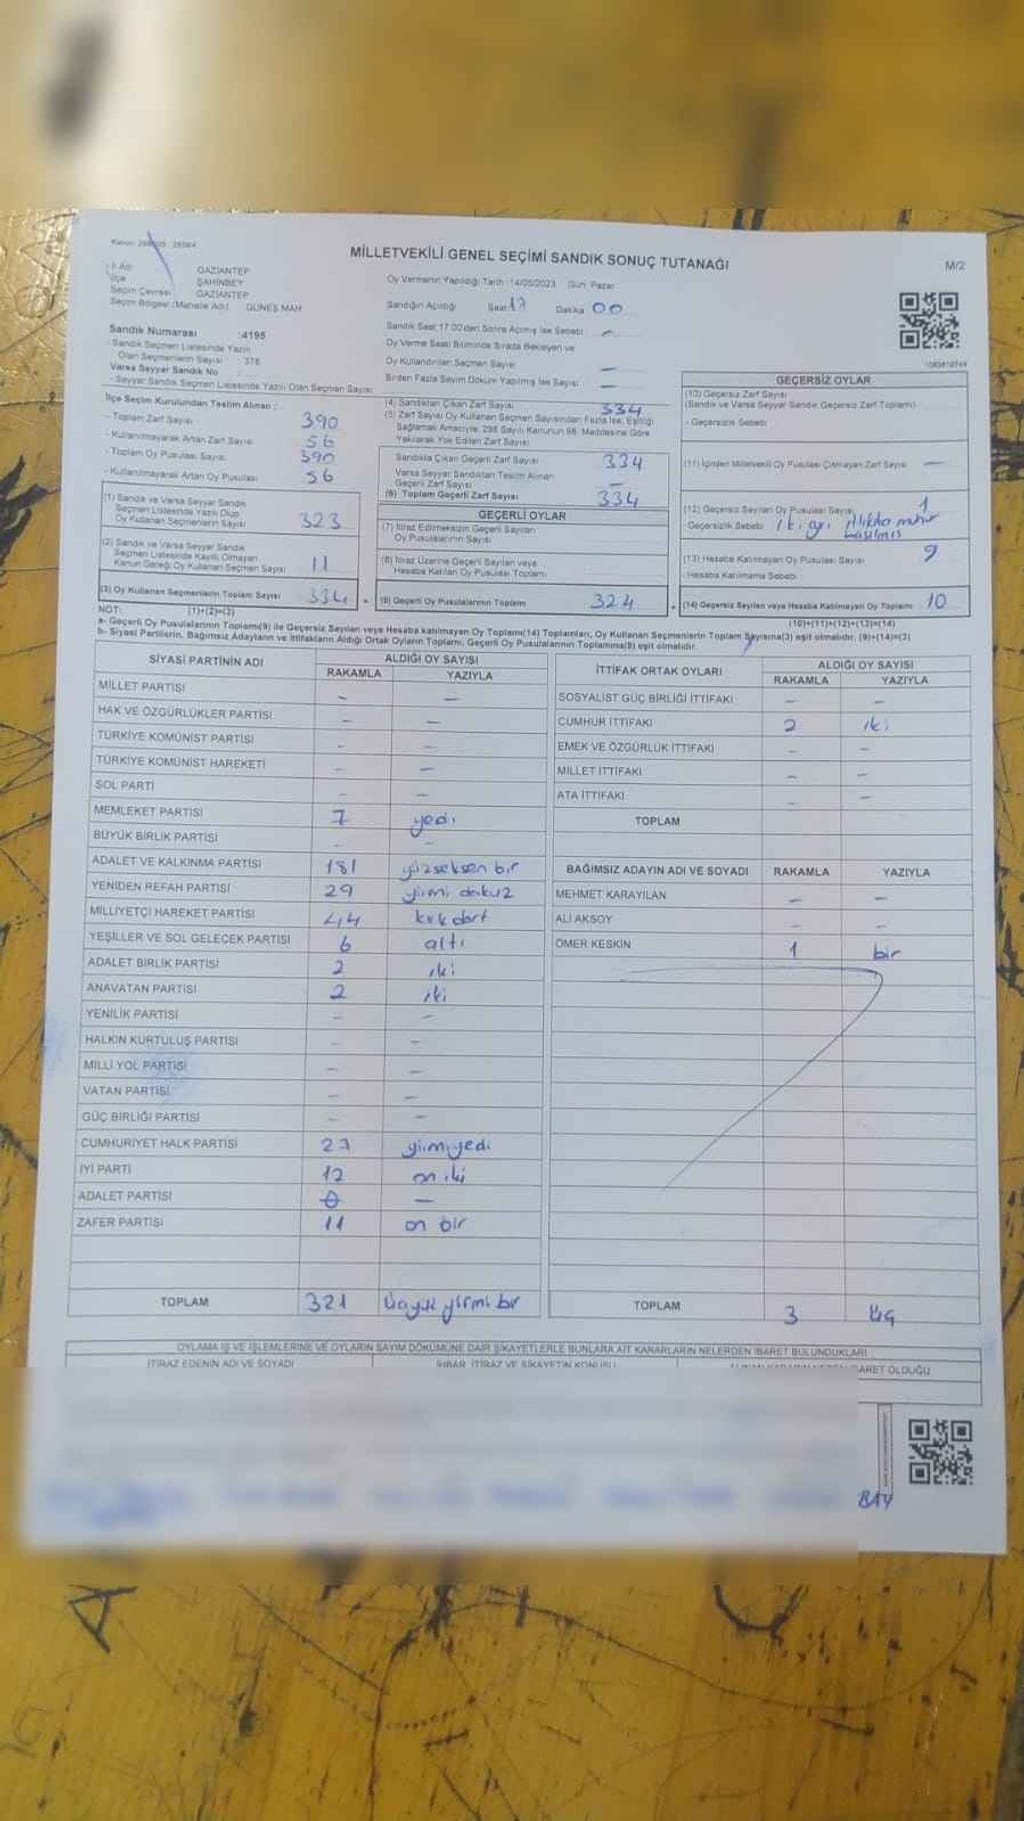 MİLLETVEKİLİ GENEL SEÇİMİ SANDIK SONUÇ TUTANAĞI
M/2
İl Adı GAZİANTEP
İlçe ŞAHİNBEY
Seçim Çevresi GAZİANTEP
Seçim Bölgesi (Mahalle Adı) GÜNEŞ MAH
Oy Vermenin Yapıldığı Tarih :14/05/2023 Gün: Pazar
Sandığın Açıldığı Saat 17 Dakika 00
Sandık Saat 17:00'den Sonra Açılmış İse Sebebi
Oy Verme Saati Bitiminde Sırada Bekleyen ve
Oy Kullandırılan Seçmen Sayısı
Birden Fazla Sayım Döküm Yapılmış İse Sayısı
Sandık Numarası :4195
Sandık Seçmen Listesinde Yazılı
Olan Seçmenlerin Sayısı : 378
Varsa Seyyar Sandık No
- Seyyar Sandık Seçmen Listesinde Yazılı Olan Seçmen Sayısı
İlçe Seçim Kurulundan Teslim Alınan :
- Toplam Zarf Sayısı 390
- Kullanılmayarak Artan Zarf Sayısı 56
- Toplam Oy Pusulası Sayısı 390
- Kullanılmayarak Artan Oy Pusulası 56
(1) Sandık ve Varsa Seyyar Sandık
Seçmen Listesinde Yazılı Olup
Oy Kullanan Seçmenlerin Sayısı 323
(2) Sandık ve Varsa Seyyar Sandık
Seçmen Listesinde Kayıtlı Olmayan
Kanun Gereği Oy Kullanan Seçmen Sayısı 11
(3) Oy Kullanan Seçmenlerin Toplam Sayısı 334
(1)+(2)=(3)
(4) Sandıktan Çıkan Zarf Sayısı 334
(5) Zarf Sayısı Oy Kullanan Seçmen Sayısından Fazla İse, Eşitliği
Sağlamak Amacıyla, 298 Sayılı Kanunun 98. Maddesine Göre
Yakılarak Yok Edilen Zarf Sayısı
Sandıkta Çıkan Geçerli Zarf Sayısı 334
Varsa Seyyar Sandıktan Teslim Alınan
Geçerli Zarf Sayısı
(6) Toplam Geçerli Zarf Sayısı 334
GEÇERLİ OYLAR
(7) İtiraz Edilmeksizin Geçerli Sayılan
Oy Pusulalarının Sayısı
(8) İtiraz Üzerine Geçerli Sayılan veya
Hesaba Katılan Oy Pusulası Toplamı
(9) Geçerli Oy Pusulalarının Toplamı 324
GEÇERSİZ OYLAR
(10) Geçersiz Zarf Sayısı
(Sandık ve Varsa Seyyar Sandık Geçersiz Zarf Toplamı)
- Geçersizlik Sebebi
(11) İçinden Milletvekili Oy Pusulası Çıkmayan Zarf Sayısı —
(12) Geçersiz Sayılan Oy Pusulası Sayısı 1
Geçersizlik Sebebi iki ayrı mühür
basılmış
(13) Hesaba Katılmayan Oy Pusulası Sayısı 9
Hesaba Katılmama Sebebi
(14) Geçersiz Sayılan veya Hesaba Katılmayan Oy Toplamı 10
(10)+(11)+(12)+(13)=(14)
NOT:
a- Geçerli Oy Pusulalarının Toplamı(9) ile Geçersiz Sayılan veya Hesaba katılmayan Oy Toplamı(14) Toplamları, Oy Kullanan Seçmenlerin Toplam Sayısına(3) eşit olmalıdır. (9)+(14)=(3)
b- Siyasi Partilerin, Bağımsız Adayların ve İttifakların Aldığı Ortak Oyların Toplamı, Geçerli Oy Pusulalarının Toplamına(9) eşit olmalıdır.
SİYASİ PARTİNİN ADI ALDIĞI OY SAYISI
RAKAMLA YAZIYLA
MİLLET PARTİSİ – –
HAK VE ÖZGÜRLÜKLER PARTİSİ – –
TÜRKİYE KOMÜNİST PARTİSİ – –
TÜRKİYE KOMÜNİST HAREKETİ – –
SOL PARTİ – –
MEMLEKET PARTİSİ 7 yedi
BÜYÜK BİRLİK PARTİSİ – –
ADALET VE KALKINMA PARTİSİ 181 yüzseksen bir
YENİDEN REFAH PARTİSİ 29 yirmi dokuz
MİLLİYETÇİ HAREKET PARTİSİ 44 kırk dört
YEŞİLLER VE SOL GELECEK PARTİSİ 6 altı
ADALET BİRLİK PARTİSİ 2 iki
ANAVATAN PARTİSİ 2 iki
YENİLİK PARTİSİ – –
HALKIN KURTULUŞ PARTİSİ – –
MİLLİ YOL PARTİSİ – –
VATAN PARTİSİ – –
GÜÇ BİRLİĞİ PARTİSİ – –
CUMHURİYET HALK PARTİSİ 27 yirmi yedi
İYİ PARTİ 12 on iki
ADALET PARTİSİ 0 –
ZAFER PARTİSİ 11 on bir
TOPLAM 321 üçyüz yirmi bir
İTTİFAK ORTAK OYLARI ALDIĞI OY SAYISI
RAKAMLA YAZIYLA
SOSYALİST GÜÇ BİRLİĞİ İTTİFAKI – –
CUMHUR İTTİFAKI 2 iki
EMEK VE ÖZGÜRLÜK İTTİFAKI – –
MİLLET İTTİFAKI – –
ATA İTTİFAKI – –
TOPLAM
BAĞIMSIZ ADAYIN ADI VE SOYADI RAKAMLA YAZIYLA
MEHMET KARAYILAN – –
ALİ AKSOY – –
ÖMER KESKİN 1 bir
TOPLAM 3 üç
OYLAMA İŞ VE İŞLEMLERİNE VE OYLARIN SAYIM DÖKÜMÜNE DAİR ŞİKAYETLERLE BUNLARA AİT KARARLARIN NELERDEN İBARET BULUNDUKLARI
İTİRAZ EDENİN ADI VE SOYADI İHBAR, İTİRAZ VE ŞİKAYETİN KONUSU